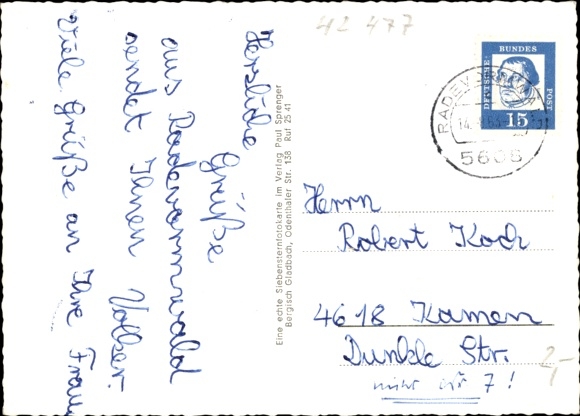 42 477
Herzliche Grüße
aus Radevormwald
sendet Ihnen Volker.
Viele Grüße an Ihre Frau
Eine echte Siebensternfotokarte im Verlag Paul Sprenger
Bergisch Gladbach, Odenthaler Str. 138 Ruf 25 41
DEUTSCHE
BUNDES
POST
15
RADEVORMWALD
5608
Herrn
Robert Koch
4618 Kamen
Dunkle Str.
7!
2,-